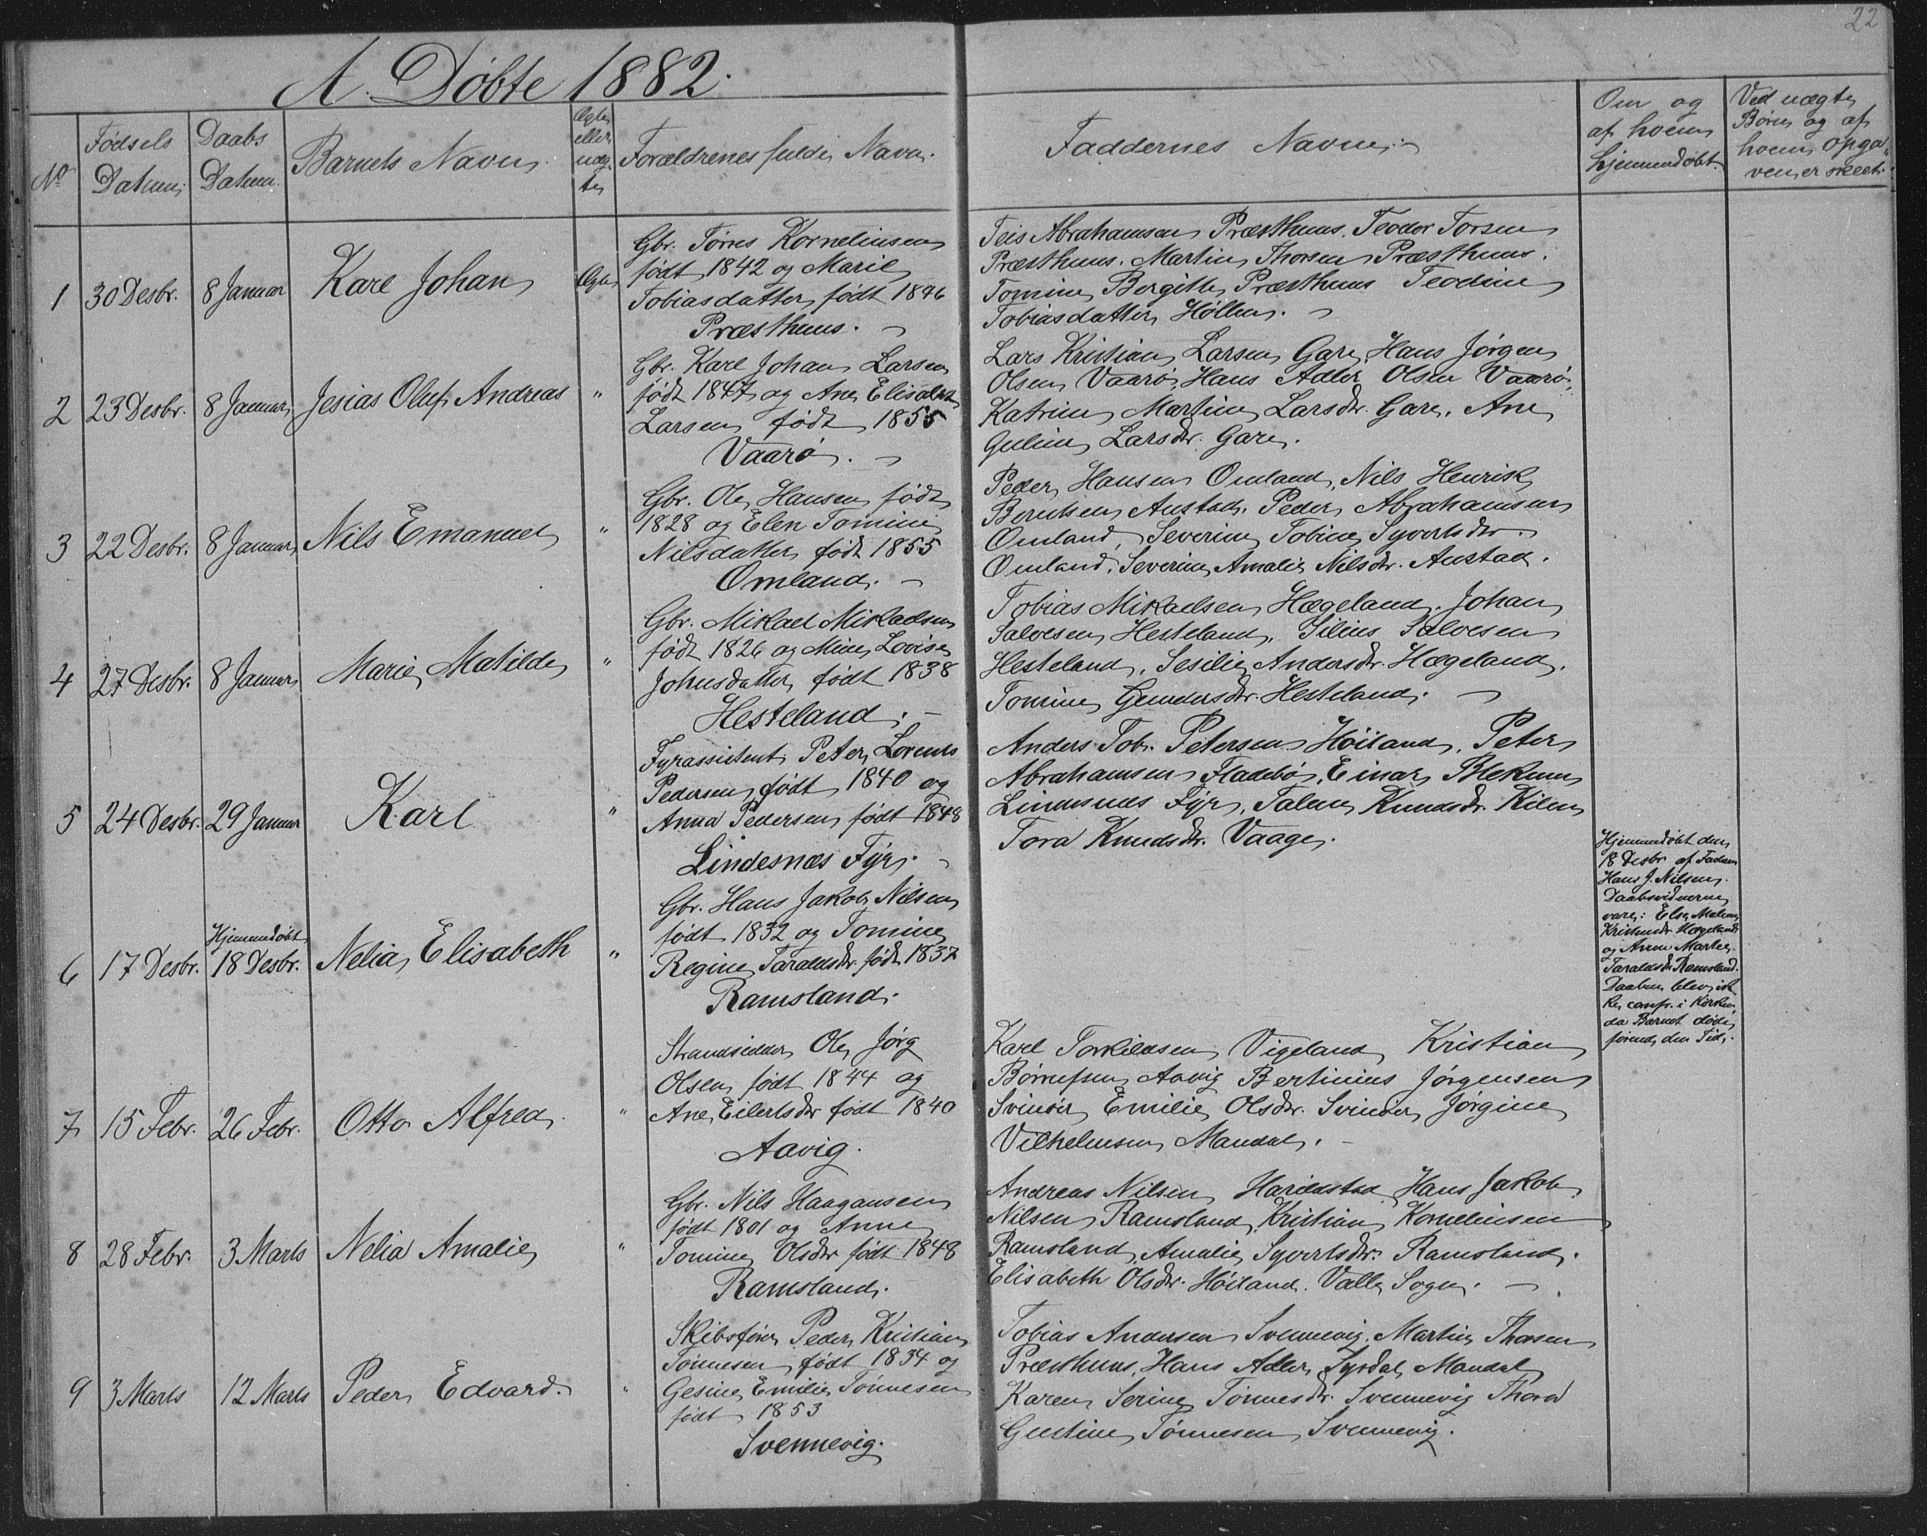 22
A. Døbte 1882.
No
Fødsels Datum
Daabs Datum
Barnets Navn
Ægte eller uægte
Forældrenes fulde Navn.
Faddernes Navne
Om og af hvem hjemmedøbt.
Ved uægte Børn og af hvem Opgaven er skeet.
1
30 Desbr.
8 Januar
Karl Johan
Ægte
Gbr. Tørres Kornelius​en
født 1842 og Marie
Tobiasdatter født 1846
Præsthuus.
Teis Abrahamsen Præsthuus, Teodor Torsen
Præsthuus. Martin Thorsen Præsthuus.
Tomine Bergitte Præsthuus Teodine
Tobiasdatter Høllen.
2
23 Desbr.
8 Januar
Jesias Oluf Andreas
"
Gbr. Karl Johan Larsen
født 1847 og Ane Elisabet
Larsen født 1855
Vaarø.
Lars Kristian Larsen Gare, Hans Jørgen
Olsen Vaarø, Hans Adler Olsen Vaarø,
Katrine Martine Larsdtr. Gare, Ane
Guline Larsdtr. Gare.
3
22 Desbr.
8 Januar
Nils Emanuel
"
Gbr. Ole Hansen født
1828 og Elen Tomine
Nilsdatter født 1855
Omland.
Peder Hansen Omland, Nils Henrik
Berntsen Austad. Peder Abrahamsen
Omland, Severine Tobine Syvertsdtr.
Omland, Severine Amalie Nilsdtr. Austad.
4
27 Desbr.
8 Januar
Marie Matilde
"
Gbr. Mikael Mikaelsen
født 1826 og Mine Lovise
Johnsdatter født 1838
Hesteland.
Tobias Mikaelsen Hægeland, Johan
Salvesen Hesteland, Silius Salvesen
Hesteland, Sesilie Andersdtr. Hægeland,
Tomine Gundersdtr. Hesteland.
5
24 Desbr.
29 Januar
Karl
"
Fyrassistent Peter Lorents
Pedersen født 1840 og
Anna Pedersen født 1848
Lindesnæs Fyr.
Anders Tob. Petersen Høiland, Peter
Abrahamsen Fladebø, Einar Blekum
Lindesnæs Fyr, Talene Knudsdtr. Kilen
Tora Knudsdtr. Vaage.
6
17 Desbr.
Hjemmedøbt
18 Desbr.
Nelia Elisabeth
"
Gbr. Hans Jakob Nilsen
født 1832 og Tomine
Regine Taraldsdtr. født 1837
Ramsland.
Hjemmedøbt den
18 Desbr. af Faderen
Hans J. Nilsen.
Daabsvidnerne
vare: Else Malene
Kristensdtr. Hægeland
og Anne Marthe
Taraldsdtr. Ramsland.
Daaben blev ik-
ke conf. i Kirken,
da Barnet døde
forend den Tid.
7
15 Febr.
26 Febr.
Otto Alfred
"
Strandsidder Ole Jørg
Olsen født 1844 og
Ane Eilertsdtr født 1840
Aavig.
Karl Torkildsen Vigeland Kristian
Børresen Aavig Bertinius Jørgensen
Svinøir Emilie Olsdtr. Svinøer Jørgine
Vilhelmsen Mandal.
8
28 Febr.
3 Marts
Nelia Amalie
"
Gbr. Nils Haagansen
født 1801 og Anne
Tomine Olsdtr født 1848
Ramsland.
Andreas Nilsen Harildstad Hans Jakob
Nilsen Ramsland, Kristian Korneliusen
Ramsland, Amalie Syvertsdtr. Ramsland.
Elisabeth Olsdtr. Høiland. Valle Sogn.
9
3 Marts
12 Marts
Peder Edvard.
"
Skibsfører Peder Kristian
Tønnesen født 1834 og
Gesine Emilie Tønnesen
født 1853
Svennevig.
Tobias Andersen Svennevig, Martin Thorsen
Præsthuus, Hans Adler Syrdal Mandal
Karen Serine Tønnesdtr. Svennevig Thora
Gustine Tønnesen Svennevig.